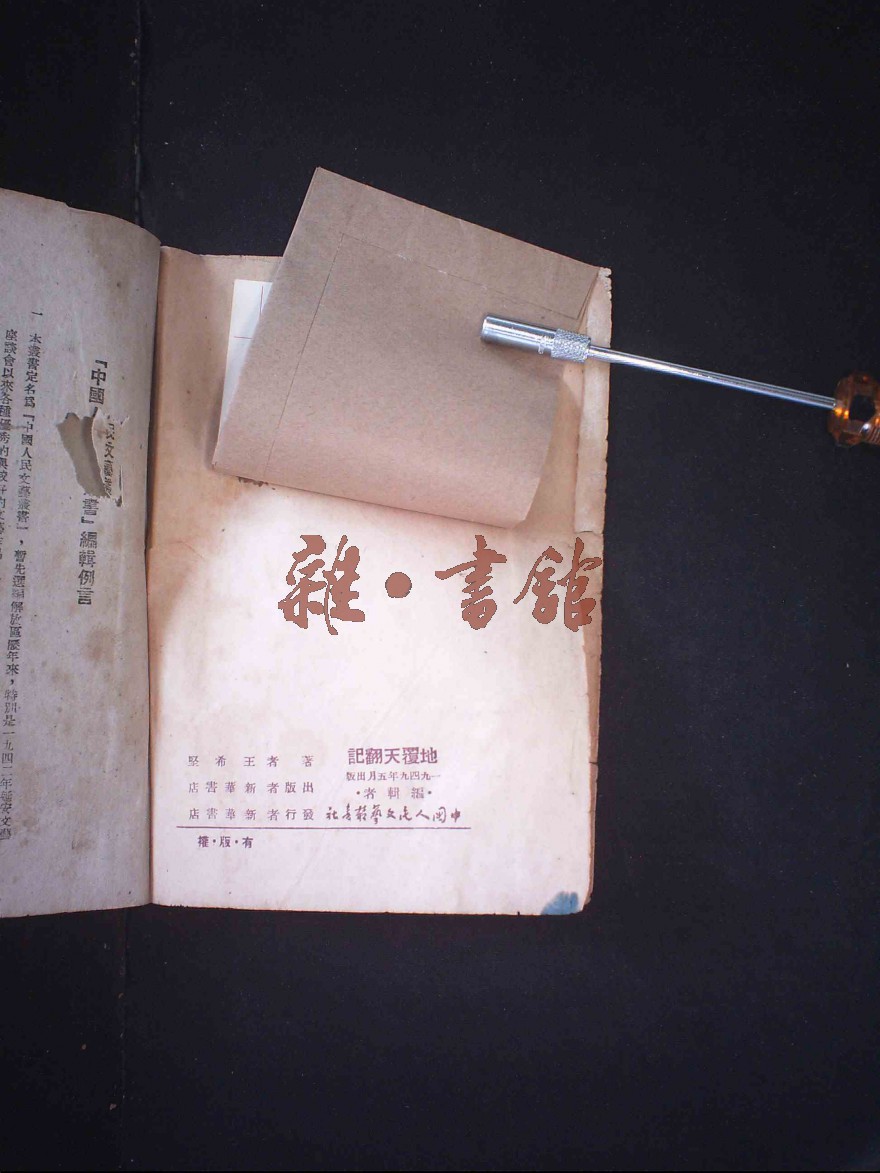 『中國
文藝
書』編輯例言
一 本叢書定名爲『中國人民文藝叢書』,暫先選編解放區歷年來,特別是一九四二年延安文藝
座談會以來各種優秀的與較好的文藝
雜•書館
地覆天翻記
一九四九年五月出版
•編輯者•
中國人民文藝叢書社
著者王希堅
出版者新華書店
發行者新華書店
有•版•權